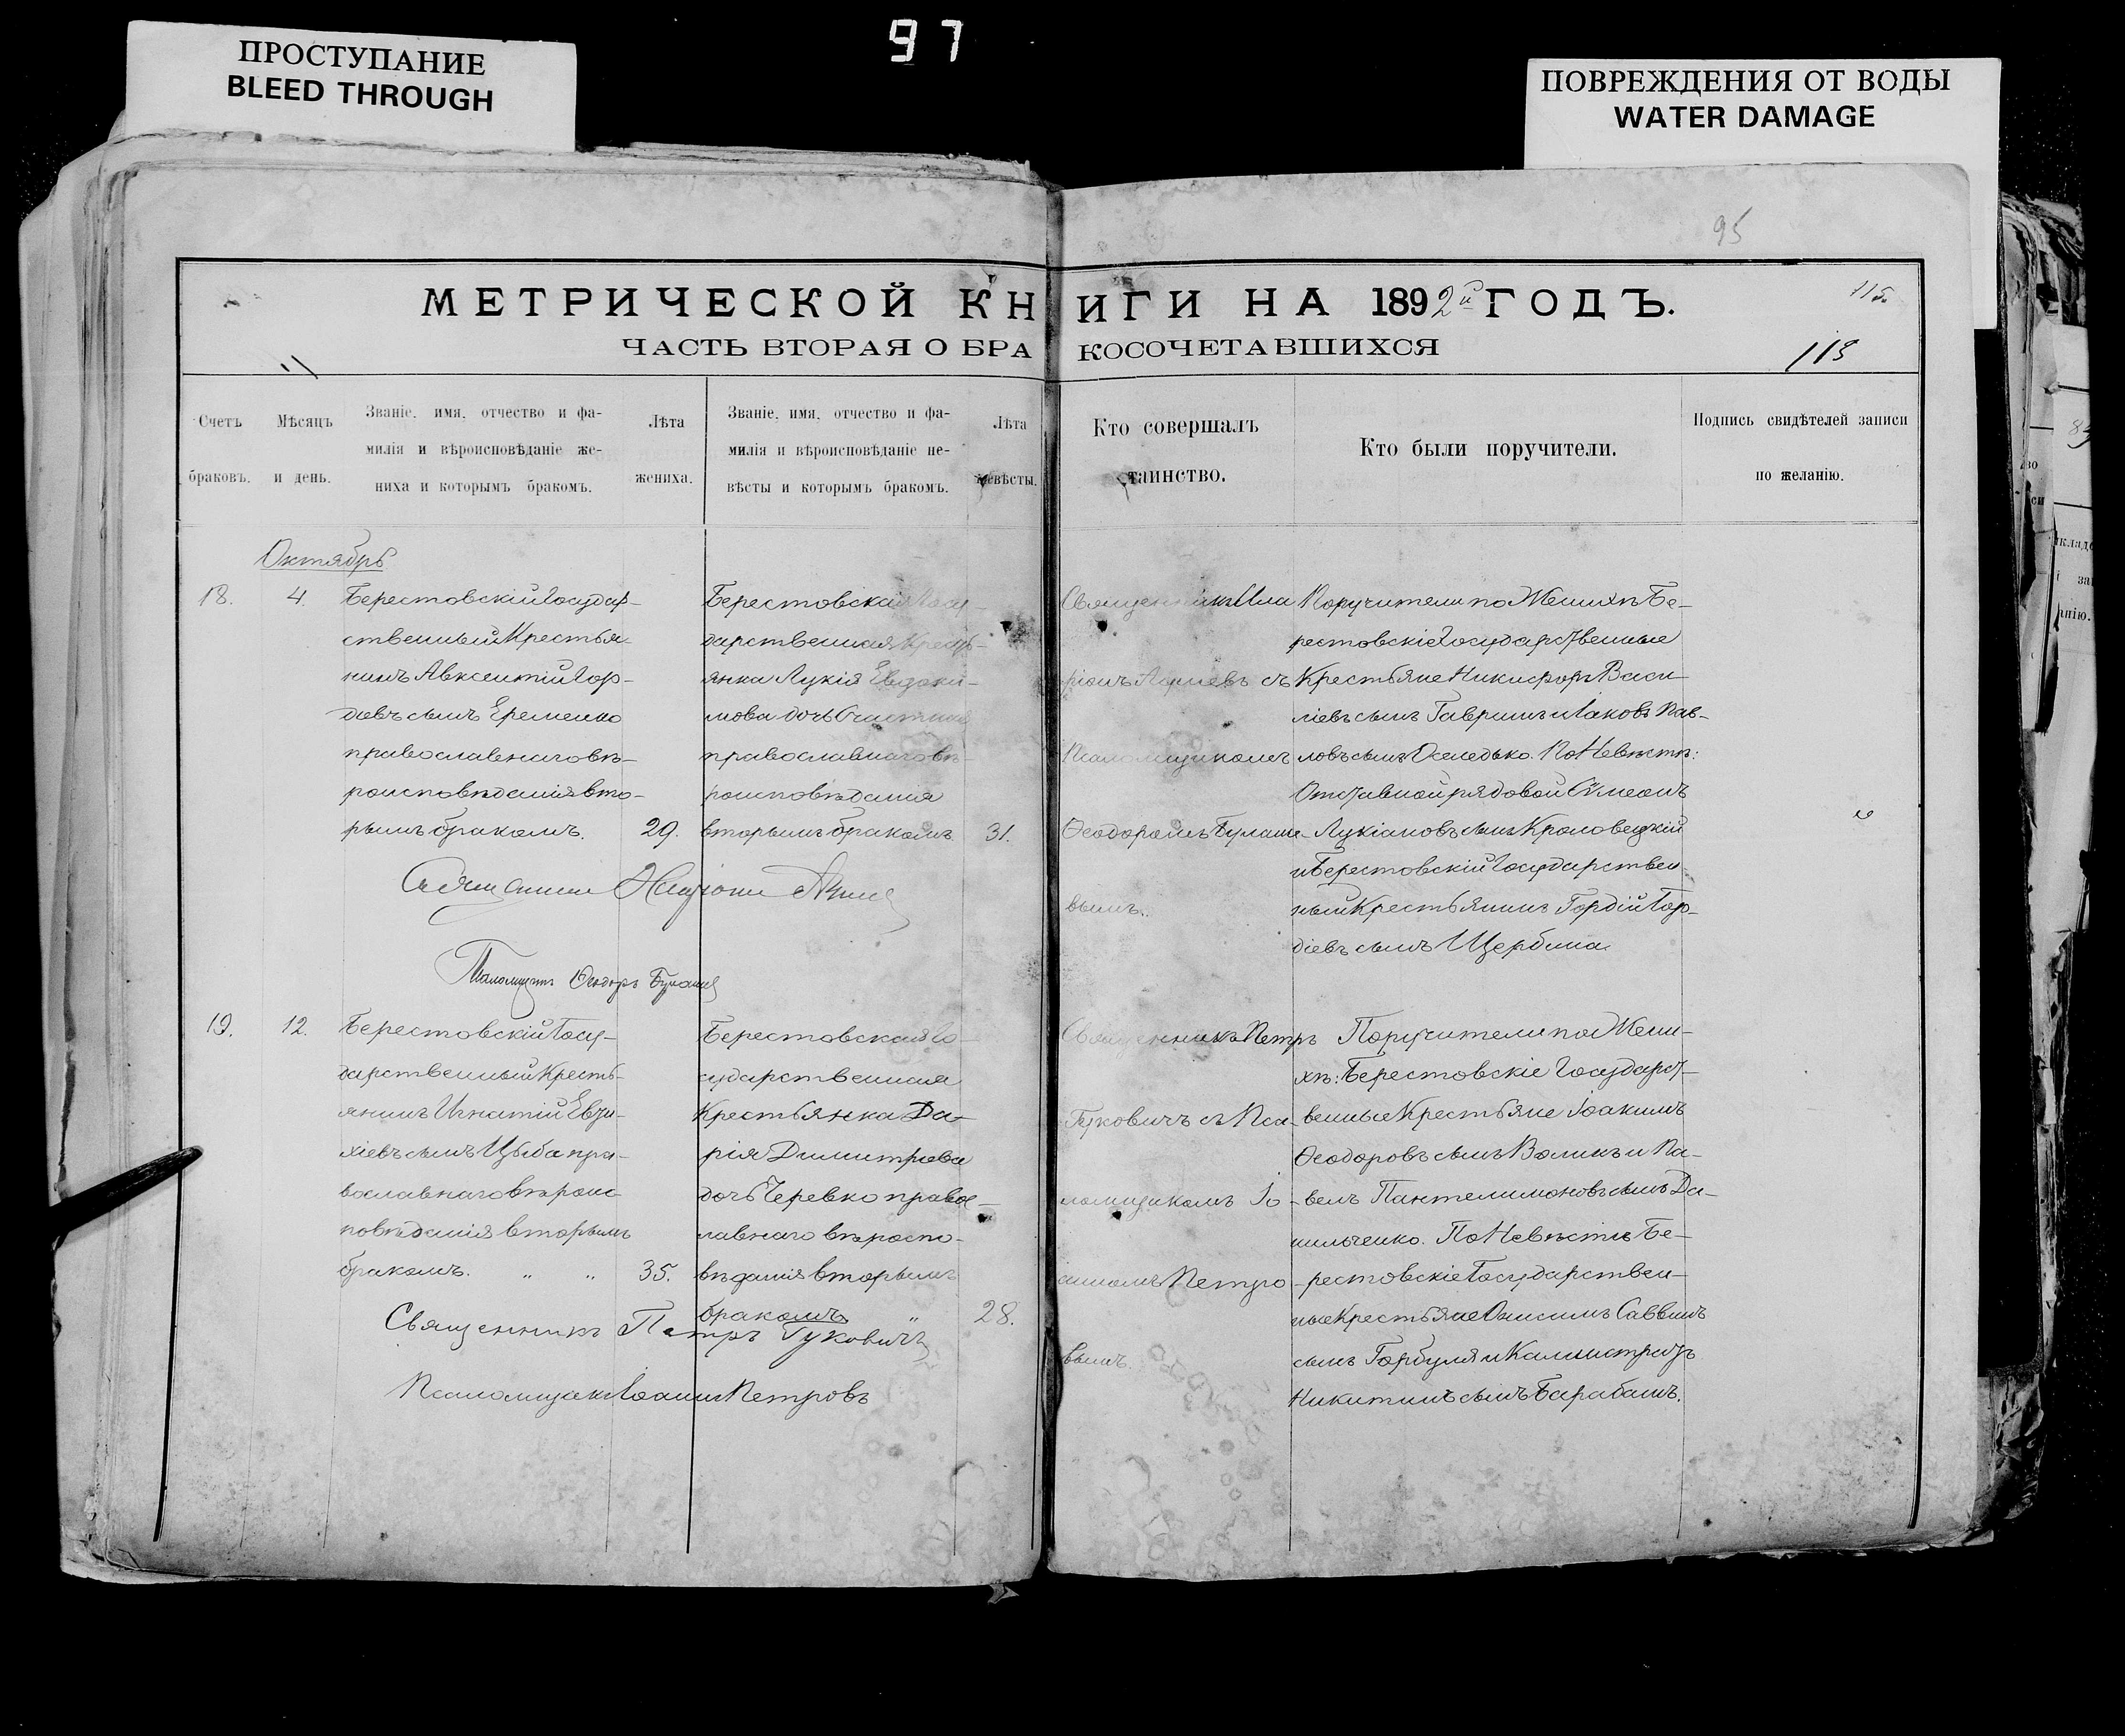 ПРОСТУПАНИЕ
BLEED THROUGH
97
ПОВРЕЖДЕНИЯ ОТ ВОДЫ
WATER DAMAGE
95
МЕТРИЧЕСКОЙ КНИГИ НА 1892й ГОДЪ.
115
ЧАСТЬ ВТОРАЯ О БРАКОСОЧЕТАВШИХСЯ
113
Счетъ
браковъ.
Мѣсяцъ
и день.
Званіе, имя, отчество и фа-
милія и вѣроисповѣданіе же-
ниха и которымъ бракомъ.
Лѣта
жениха.
Званіе, имя, отчество и фа-
милія и вѣроисповѣданіе не-
вѣсты и которымъ бракомъ.
Лѣта
невѣсты.
Кто совершалъ
таинство.
Кто были поручители.
Подпись свидѣтелей записи
по желанію.
Октябрь
18.
4.
Берестовскій Государ-
ственный Крестья-
нинъ Авксентій Гор-
діевъ сынъ Еременко
православнаго вѣ-
роисповѣданія вто-
рымъ бракомъ.
29.
Берестовская Госу-
дарственная Кресть-
янка Лукія Евдоки-
мова дочь
православнаго вѣ-
роисповѣданія
вторымъ бракомъ
31.
Священникъ Ила
ріонъ съ
Псаломщикомъ
Ѳеодоромъ Булаше-
вымъ.
Поручители по Женихѣ Бе-
рестовскіе Государственные
Крестьяне Никифоръ Васи-
ліевъ сынъ Гавришъ и Іаковъ Пав-
ловъ сынъ Оселедько. По Невѣстѣ:
Отставной рядовой Сѵмеонъ
Лукіановъ сынъ Кроловецкій
и Берестовскій Государствен-
ный Крестьянинъ Гордій Гор-
діевъ сынъ Щербина
Псаломщикъ Ѳеодоръ
19.
12.
Берестовскій Госу-
дарственный Кресть-
янинъ Игнатій Евти-
хіевъ сынъ Цыба пра-
вославнаго вѣроис-
повѣданія вторымъ
бракомъ. " "
35.
Берестовская Го-
сударственная
Крестьянка Да-
рія Димитріева
дочь Черевко правос-
лавнаго вѣроспо-
вѣданія вторымъ
бракомъ "
28.
Священникъ Петръ
Гуковичъ съ Пса-
ломщикомъ Іо-
анномъ Петро-
вымъ.
Поручители по Жени-
хѣ: Берестовскіе Государст-
венные Крестьяне Іоакимъ
Ѳеодоровъ сынъ Воликъ и Па-
велъ Пантелимоновъ сынъ Да-
нильченко. По Невѣстѣ Бе-
рестовскіе Государствен-
ные Крестьяне Онисимъ Саввинъ
сынъ Горбуля и Каллистратъ
Никитинъ сынъ Барабашъ.
Священникъ Петръ Гуковичъ
Псаломщикъ Іоаннъ Петровъ